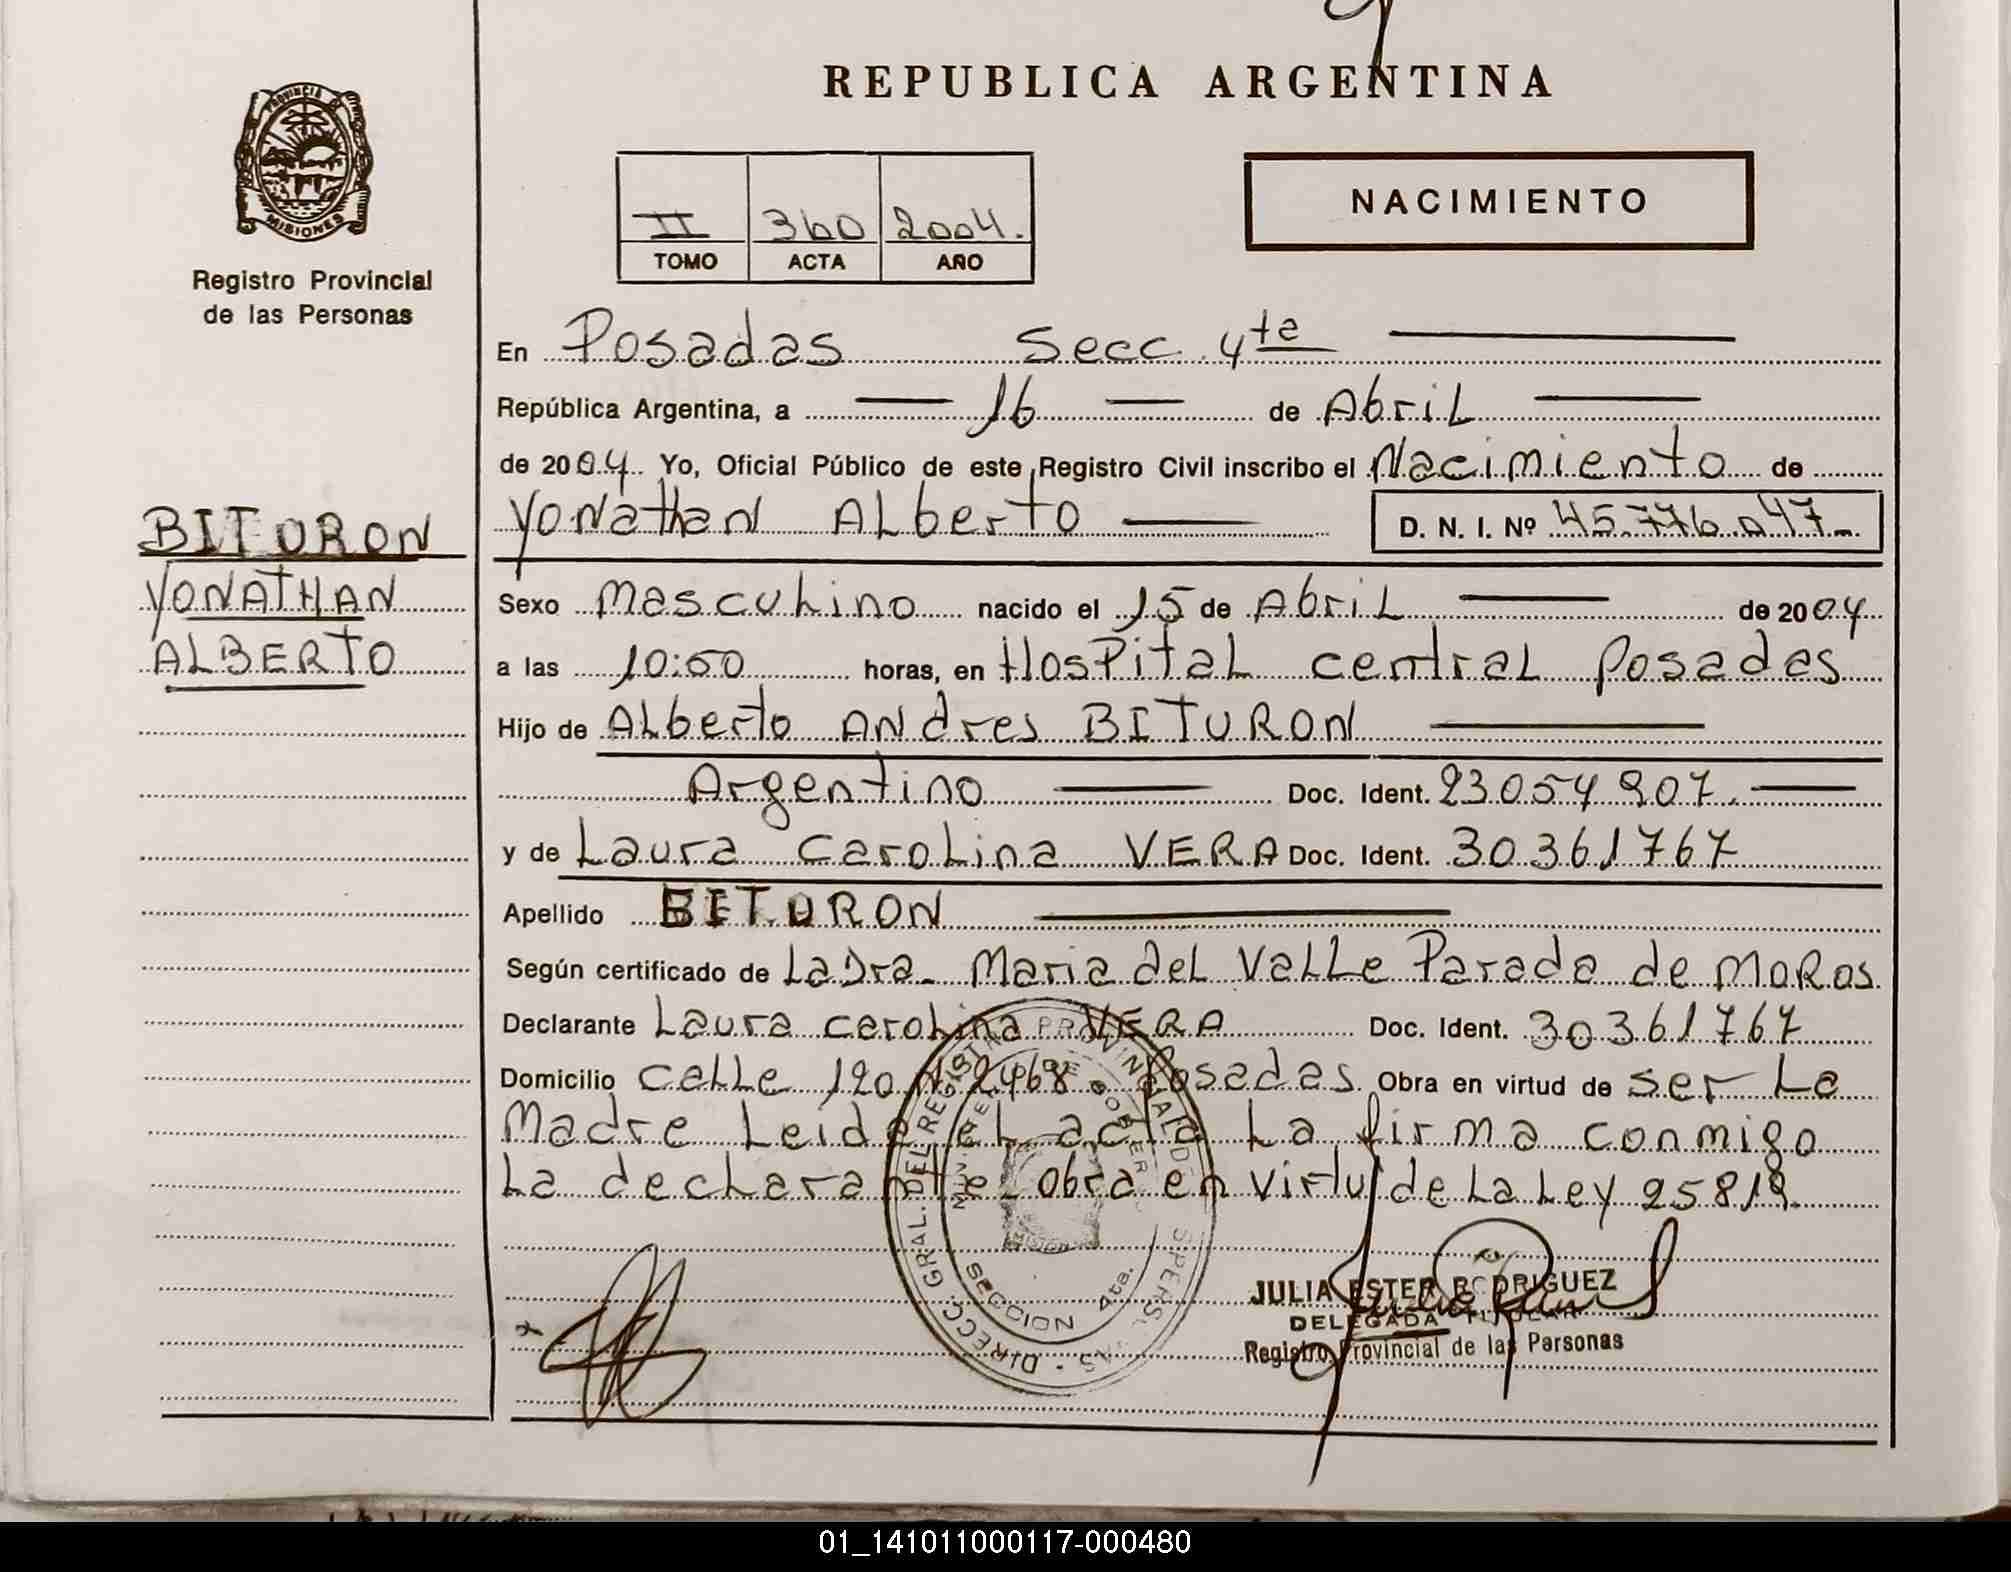 REPUBLICA ARGENTINA
PROVINCIA DE
MISIONES
Registro Provincial
de las Personas
II 360 2004.
TOMO ACTA AÑO
NACIMIENTO
En Posadas Secc 4te
República Argentina, a 16 de Abril
de 2004 Yo, Oficial Público de este Registro Civil inscribo el Nacimiento de
BITURON
YONATHAN
ALBERTO
Yonathan Alberto D. N. I. Nº 45.776.047
Sexo Masculino nacido el 15 de Abril de 2004
a las 10:50 horas, en Hospital central Posadas
Hijo de Alberto Andres BITURON
Argentino Doc. Ident. 23054907.
y de Laura Carolina VERA Doc. Ident. 30361767
Apellido BITURON
Según certificado de La Dra. Maria del Valle Parada de Moros
Declarante Laura Carolina VERA Doc. Ident. 30361767
Domicilio calle 120 N 2468 Posadas. Obra en virtud de ser La
Madre Leida el acta La firma conmigo
La declarante obra en virtu de La Ley 25819.
DIRECC. GRAL. DEL REGISTRO PROVINCIAL DE
SECCION 4ta.
JULIA ESTER RODRIGUEZ
DELEGADA TITULAR
Registro Provincial de las Personas
01_141011000117-000480